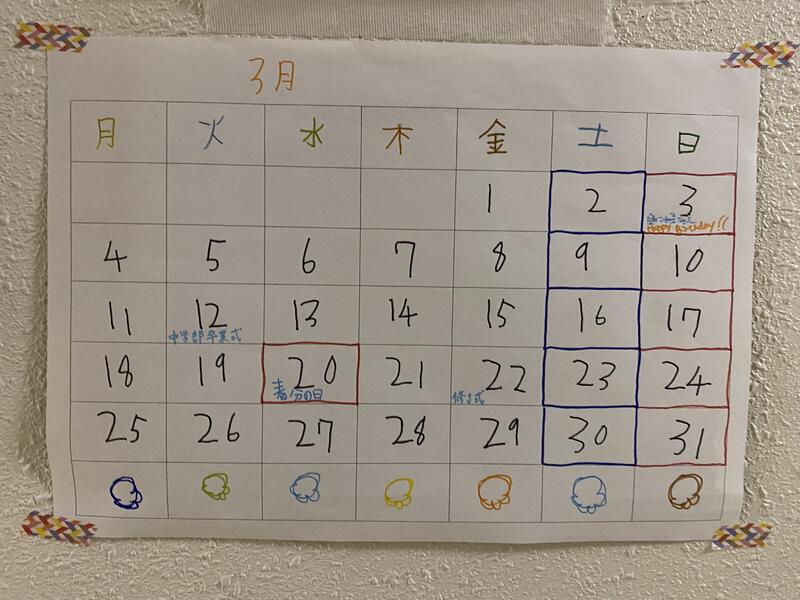 3月
月 火 水 木 金 土 日
1 2 3
Happy Birthday!!
4 5 6 7 8 9 10
11 12 13 14 15 16 17
中学部卒業式
18 19 20 21 22 23 24
春分の日 修了式
25 26 27 28 29 30 31